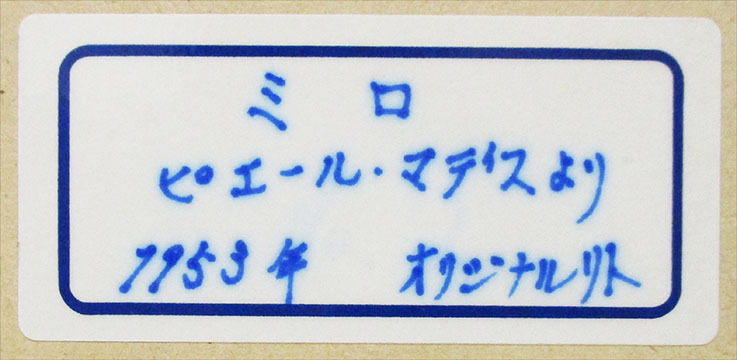 ミロ
ピエール・マティスより
1953年 オリジナルリト